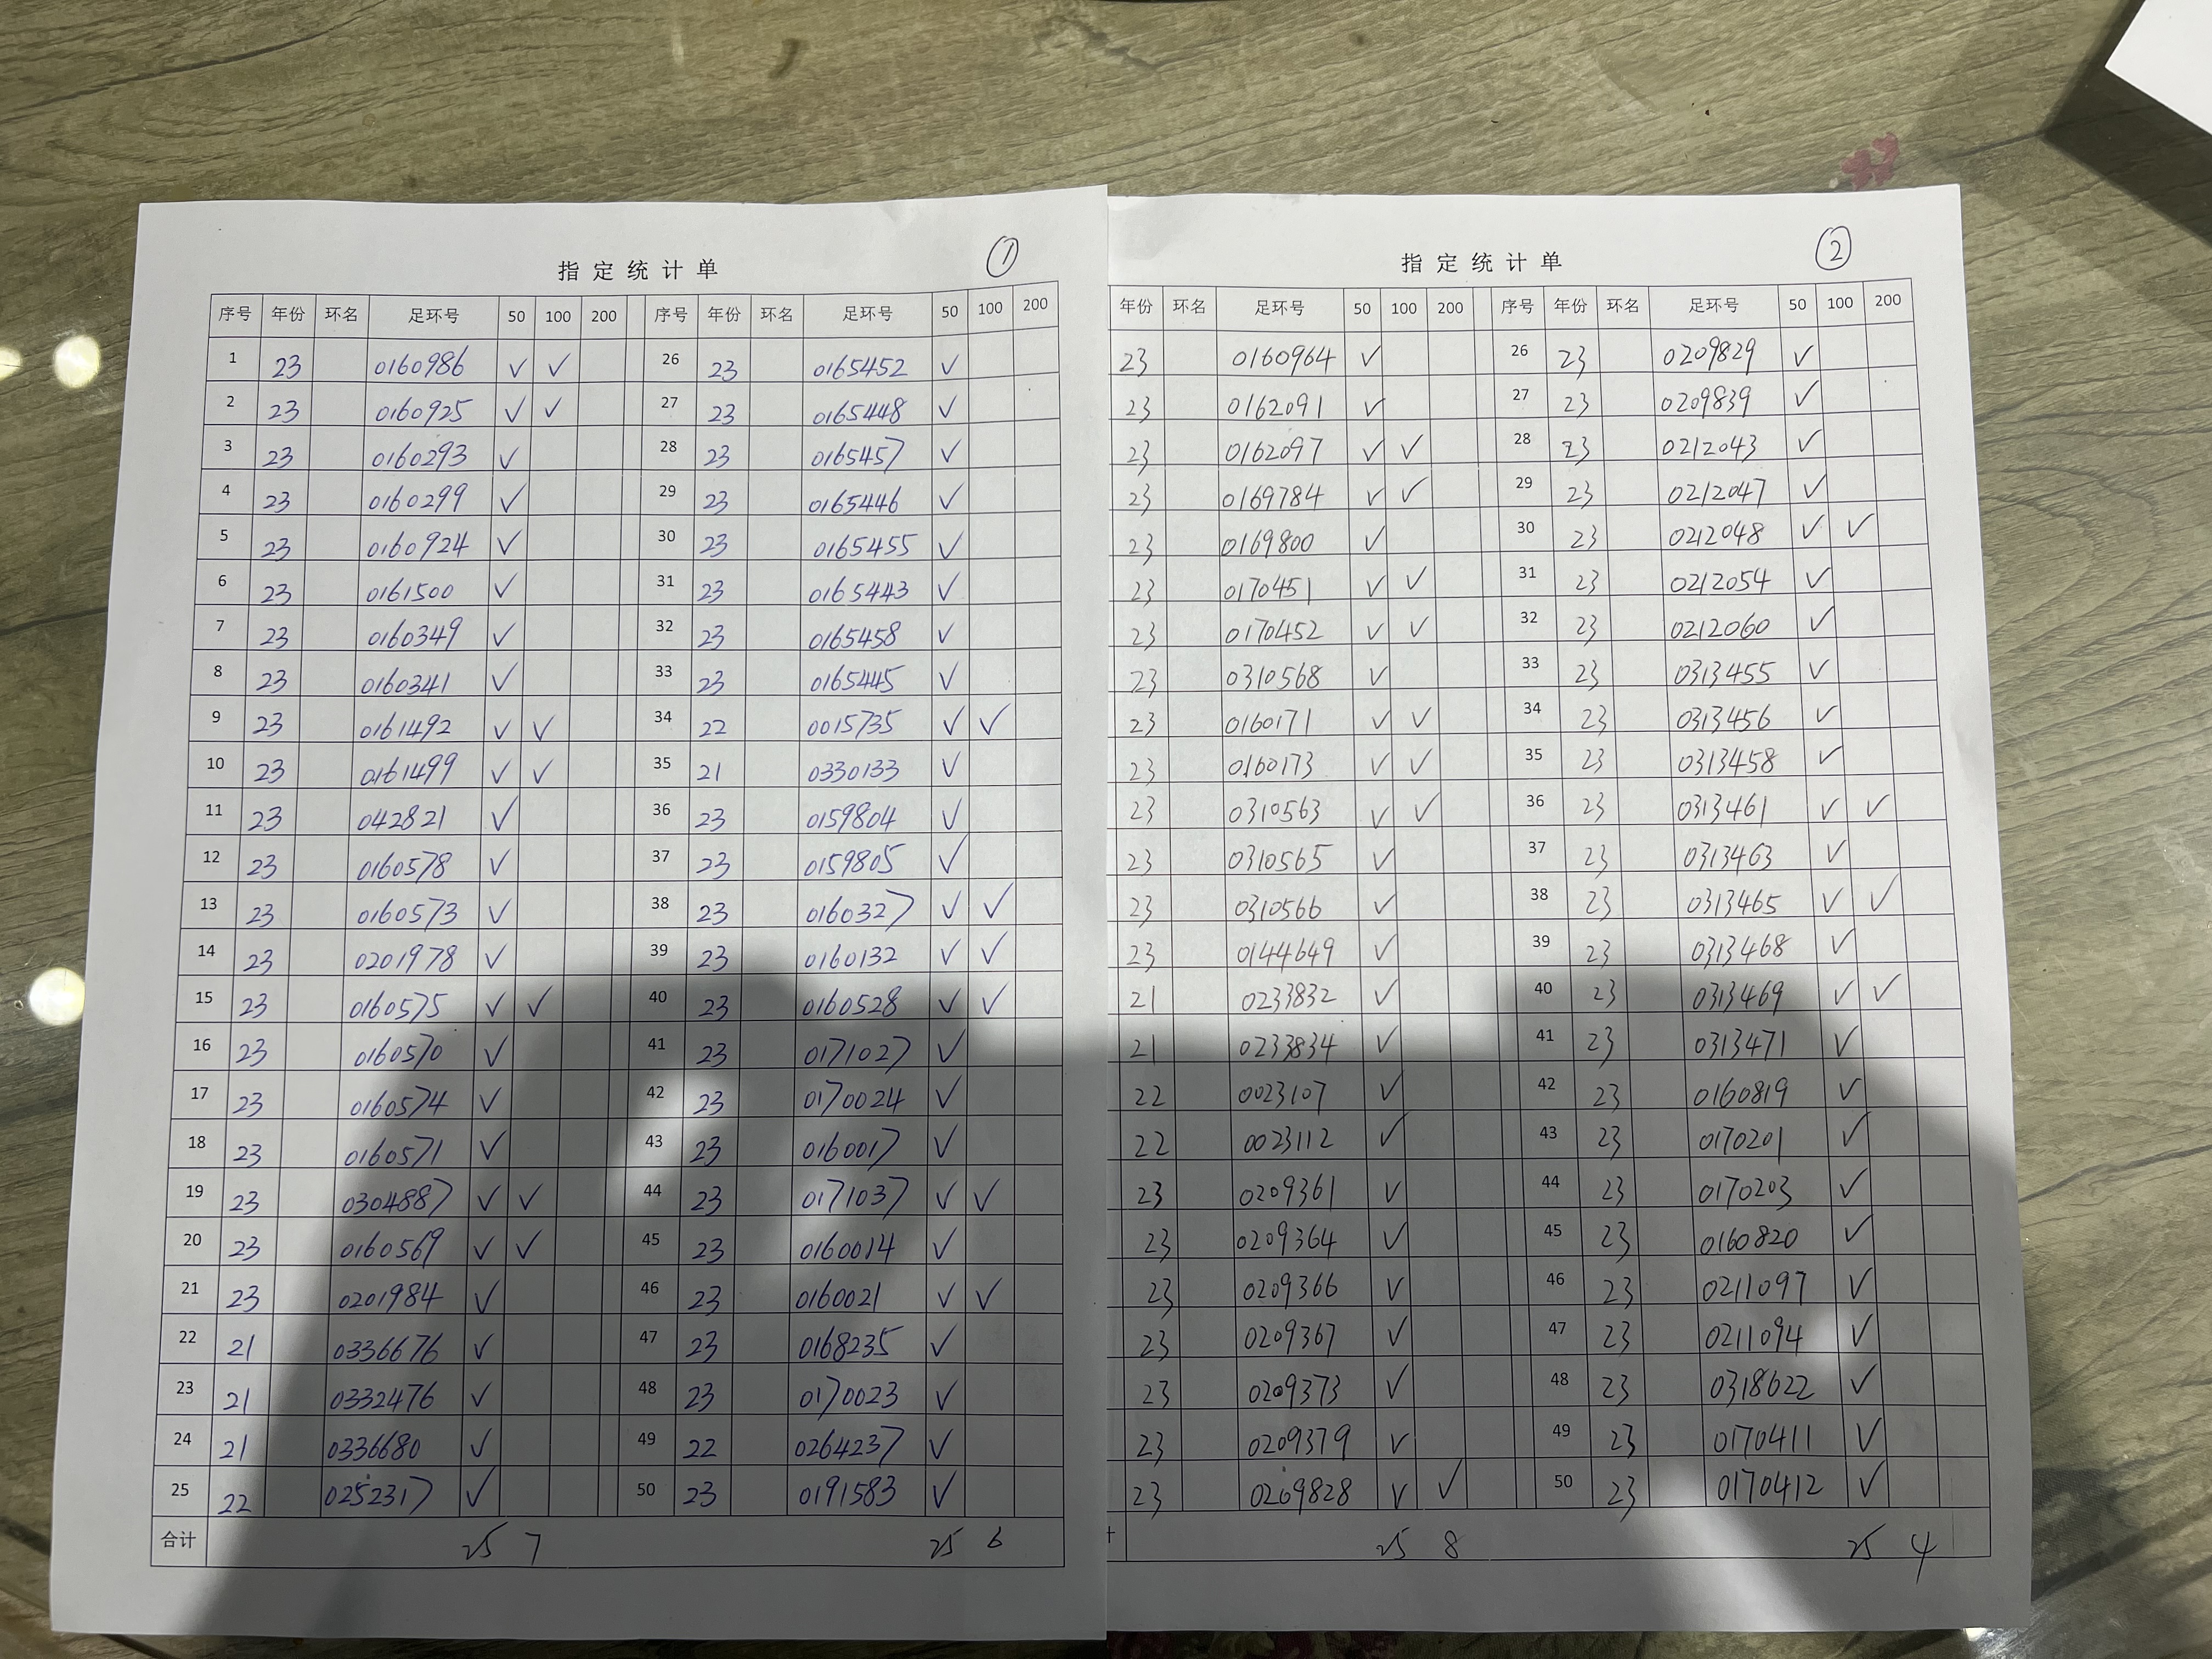 指定统计单 ①
序号 年份 环名 足环号 50 100 200 序号 年份 环名 足环号 50 100 200
1 23 0160986 ✓ ✓ 26 23 0165452 ✓
2 23 0160925 ✓ ✓ 27 23 0165448 ✓
3 23 0160293 ✓ 28 23 0165457 ✓
4 23 0160299 ✓ 29 23 0165446 ✓
5 23 0160924 ✓ 30 23 0165455 ✓
6 23 0161500 ✓ 31 23 0165443 ✓
7 23 0160349 ✓ 32 23 0165458 ✓
8 23 0160341 ✓ 33 23 0165445 ✓
9 23 0161492 ✓ ✓ 34 22 0015735 ✓ ✓
10 23 0161499 ✓ ✓ 35 21 0330133 ✓
11 23 042821 ✓ 36 23 0159804 ✓
12 23 0160578 ✓ 37 23 0159805 ✓
13 23 0160573 ✓ 38 23 0160327 ✓ ✓
14 23 0201978 ✓ 39 23 0160132 ✓ ✓
15 23 0160575 ✓ ✓ 40 23 0160528 ✓ ✓
16 23 0160570 ✓ 41 23 0171027 ✓
17 23 0160574 ✓ 42 23 0170024 ✓
18 23 0160571 ✓ 43 23 0160017 ✓
19 23 0304887 ✓ ✓ 44 23 0171037 ✓ ✓
20 23 0160569 ✓ ✓ 45 23 0160014 ✓
21 23 0201984 ✓ 46 23 0160021 ✓ ✓
22 21 0336676 ✓ 47 23 0168235 ✓
23 21 0332476 ✓ 48 23 0170023 ✓
24 21 0336680 ✓ 49 22 0264237 ✓
25 22 0252317 ✓ 50 23 0191583 ✓
合计 25 7 25 6
指定统计单 ②
年份 环名 足环号 50 100 200 序号 年份 环名 足环号 50 100 200
23 0160964 ✓ 26 23 0209829 ✓
23 0162091 ✓ 27 23 0209839 ✓
23 0162097 ✓ ✓ 28 23 0212043 ✓
23 0169784 ✓ ✓ 29 23 0212047 ✓
23 0169800 ✓ 30 23 0212048 ✓ ✓
23 0170451 ✓ ✓ 31 23 0212054 ✓
23 0170452 ✓ ✓ 32 23 0212060 ✓
23 0310568 ✓ 33 23 0313455 ✓
23 0160171 ✓ ✓ 34 23 0313456 ✓
23 0160173 ✓ ✓ 35 23 0313458 ✓
23 0310563 ✓ ✓ 36 23 0313461 ✓ ✓
23 0310565 ✓ 37 23 0313463 ✓
23 0310566 ✓ 38 23 0313465 ✓ ✓
23 0144649 ✓ 39 23 0313468 ✓
21 0233832 ✓ 40 23 0313469 ✓ ✓
21 0233834 ✓ 41 23 0313471 ✓
22 0023107 ✓ 42 23 0160819 ✓
22 0023112 ✓ 43 23 0170201 ✓
23 0209361 ✓ 44 23 0170203 ✓
23 0209364 ✓ 45 23 0160820 ✓
23 0209366 ✓ 46 23 0211097 ✓
23 0209367 ✓ 47 23 0211094 ✓
23 0209373 ✓ 48 23 0318622 ✓
23 0209379 ✓ 49 23 0170411 ✓
23 0209828 ✓ ✓ 50 23 0170412 ✓
25 8 25 4